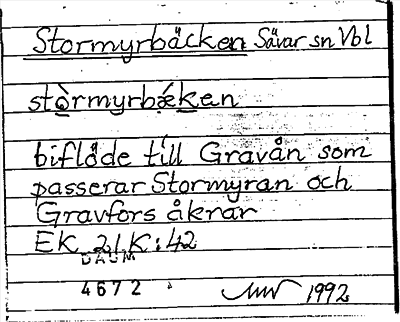 Stormyrbäcken Sävar sn Vbl
stòrmyrbǽken
biflöde till Gravån som
passerar Stormyran och
Gravfors åkrar
EK 21K:42
DAUM
4672
1992